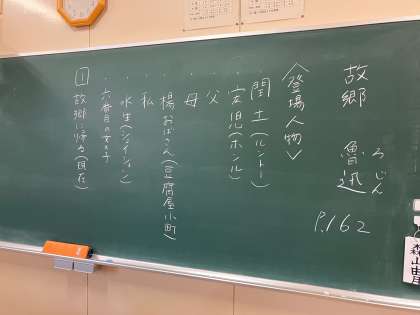 故郷 魯迅
ろじん
P.162
〈登場人物〉
・閏土(ルントー)
・宏児(ホンル)
・父
・母
・楊おばさん(豆腐屋小町)
・私
・水生(シュイション)
・六番目の女の子
1 故郷に帰る(現在)